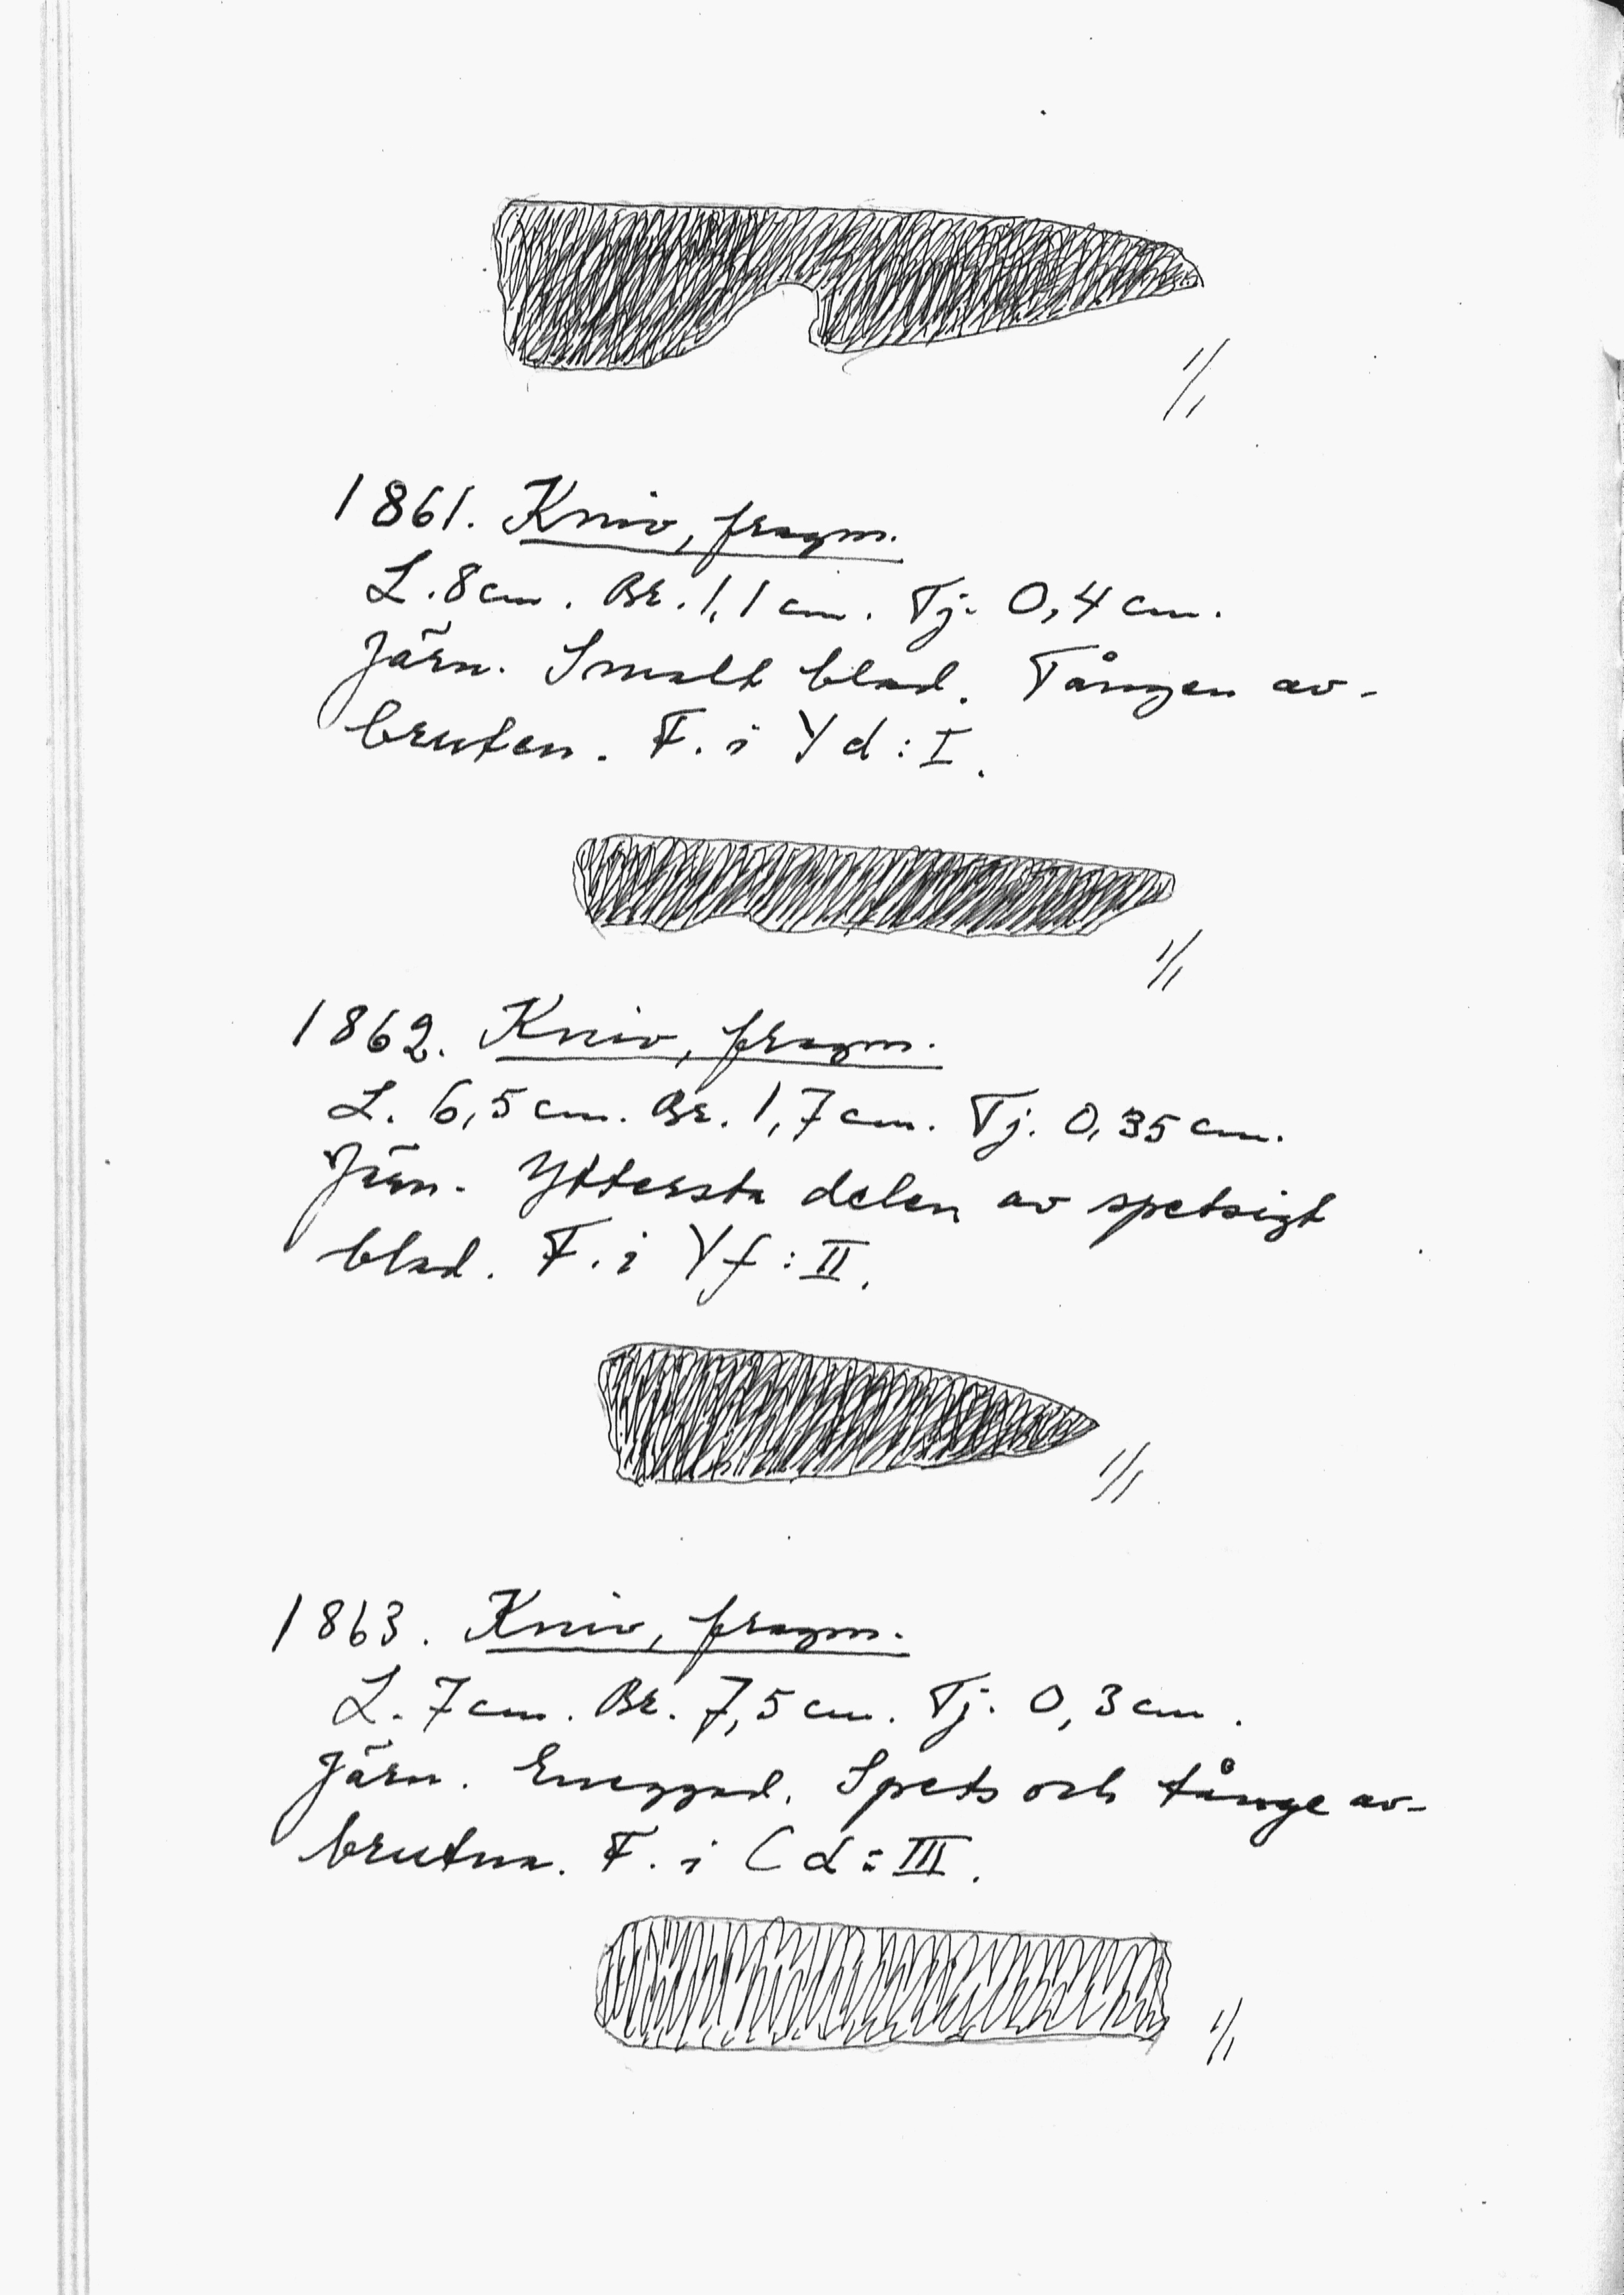 1/1
1861. Kniv, fragm.
L. 8 cm. Br. 1,1 cm. Tj. 0,4 cm.
Järn. Smalt blad. Tången av-
bruten. F. i Yd: I.
1/1
1862. Kniv, fragm.
L. 6,5 cm. Br. 1,7 cm. Tj. 0,35 cm.
Järn. Yttersta delen av spetsigt
blad. F. i Yf: II.
1/1
1863. Kniv, fragm.
L. 7 cm. Br. 7,5 cm. Tj. 0,3 cm.
Järn. Eneggad. Spets och tånge av-
brutna. F. i Cd: III.
1/1